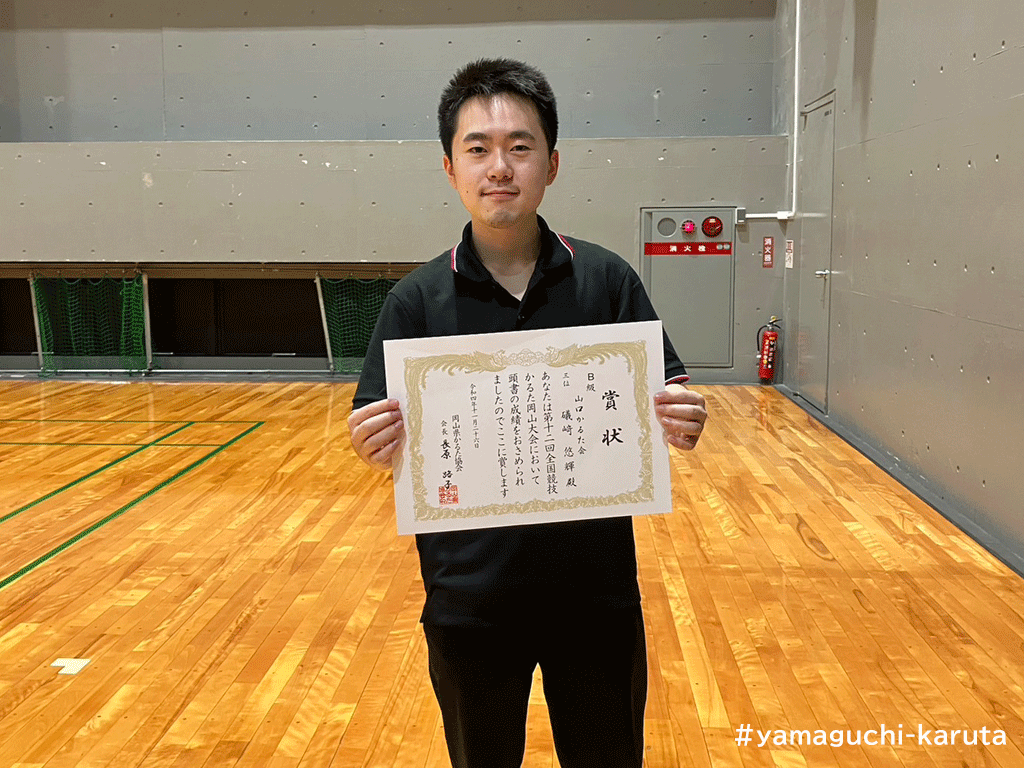 賞状
B級
三位
山口かるた会
礒﨑 悠輝 殿
あなたは第十二回全国競技
かるた岡山大会において
頭書の成績をおさめられ
ましたのでここに賞します
令和四年十一月二十六日
岡山県かるた協会
会長 長原 路子
消火栓
消火器
#yamaguchi-karuta